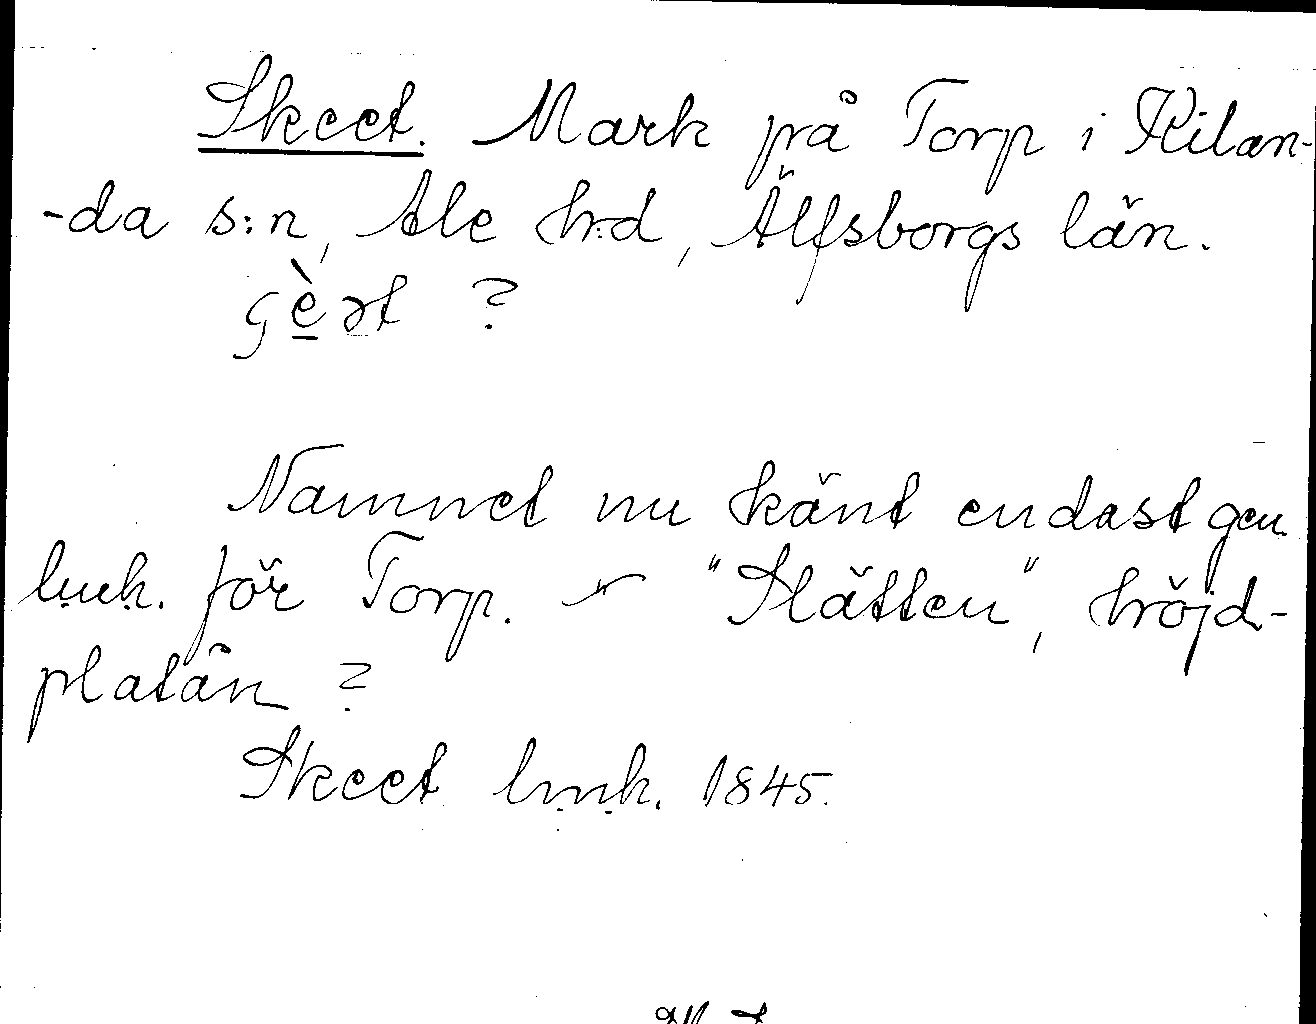 Skeet. Mark på Torp i Kilan-
-da s:n, Ale h:d, Älfsborgs län.
ʂè̱ət ?
Namnet nu känt endast gen.
lmk. för Torp. – "Slätten", höjd-
platån ?
Skeet lmk. 1845.